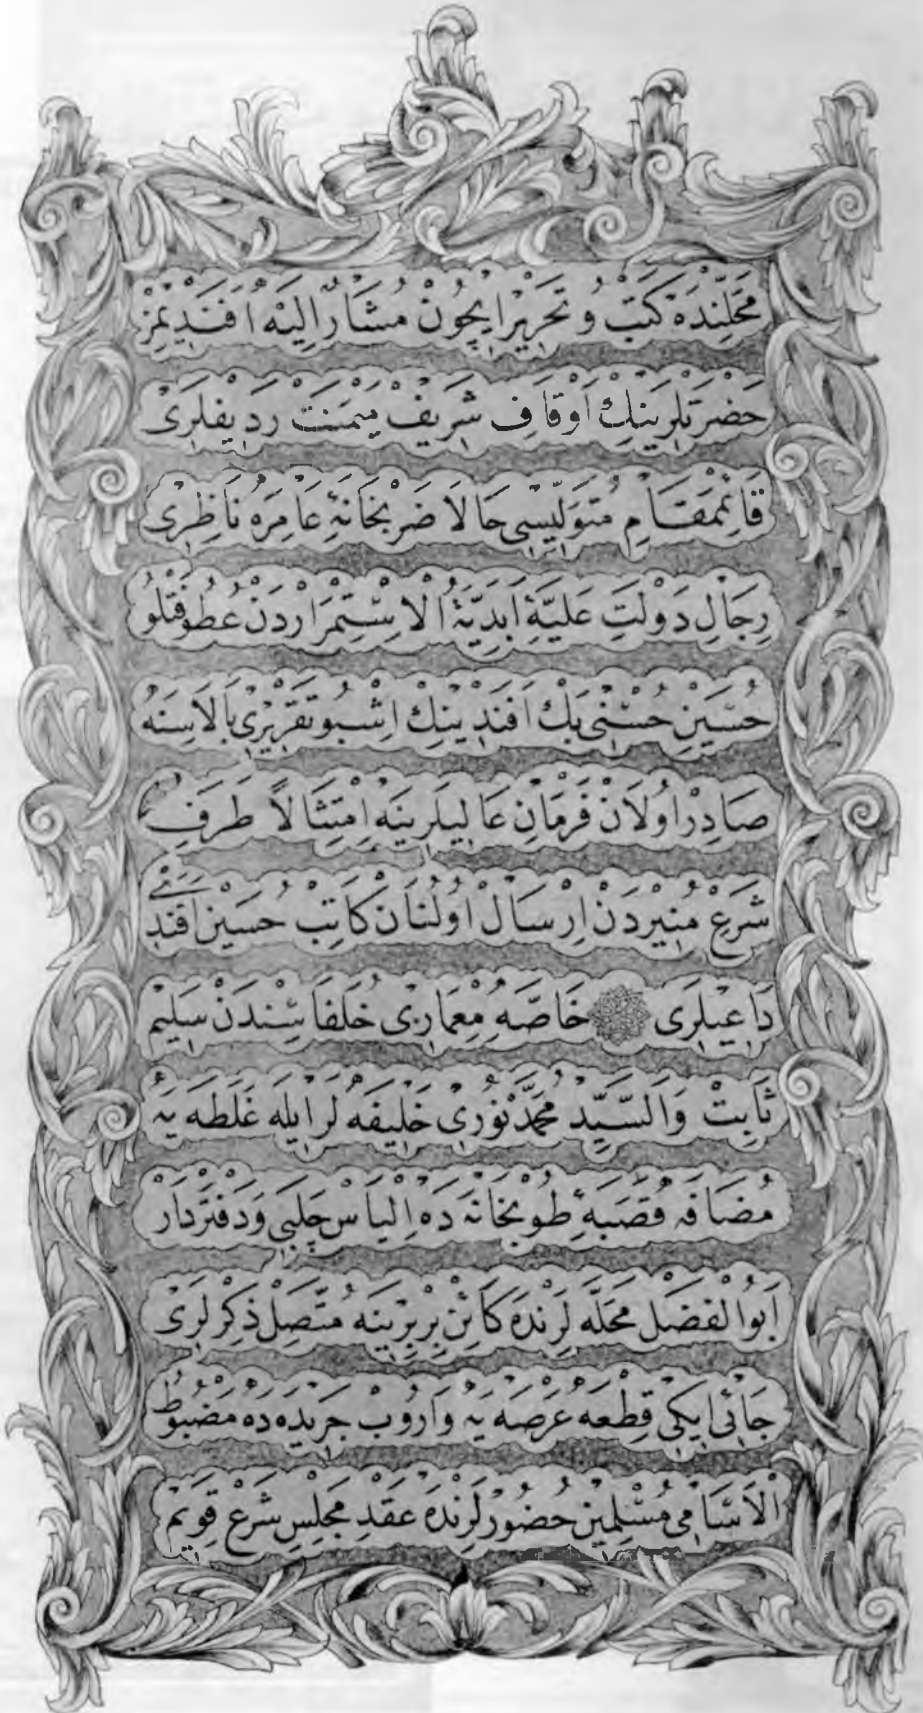 مَحَلِّنْدَه كَتْب وُ تَحْرِيرْ ايچُونْ مُشَارٌ اِلَيْه اَفَنْدِيمِزْ
حَضْرَتْلَرِينِكْ اَوْقَافِ شَرِيفْ مَيْمَنَتْ رَدِيفْلَرِى
قَائِمْمَقَامِ مُتَوَلِّيسِى حَالَا ضَرْبْخَانَهٔ عَامِرَه نَاظِرِى
رِجَالِ دَوْلَتِ عَلِيَّهٔ اَبَدِيَّةُ الْاِسْتِمْرَارْدَنْ عُطُوفَتْلُو
حُسَيْنِ حُسْنِى بَكْ اَفَنْدِينِكْ اِشْبُو تَقْرِيرِى بَالَاسِنَه
صَادِرْ اُولَانْ فَرْمَانِ عَالِيلَرِينَه اِمْتِثَالاً طَرَفِ
شَرْعِ مُنِيرْدَنْ اِرْسَالْ اُولُنَانْ كَاتِبْ حُسَيْنْ اَفَنْدِى
دَاعِيلَرِى خَاصَّه مِعْمَارِى خُلَفَاسِنْدَنْ سَلِيمْ
ثَابِتْ وَالسَّيِّدْ مُحَمَّدْ نُورِى خَلِيفَه لَرْ ايله غَلَطَه يَه
مُضَافَه قَصَبَهٔ طُوبْخَانَه دَه اِلْيَاسْ چَلَبِى وَ دَفْتَرْدَار
اَبُو الْفَضْل مَحَلَّه لَرِنْدَه كَائِنْ بِرْ بِرِينَه مُتَّصِلْ ذِكْرْلَرِى
جَائِى ايكِى قِطْعَه عَرْصَه يَه وَارُوبْ جَرِيدَه دَه مَضْبُوطُ
الْاَسَامِى مُسْلِمِينْ حُضُورْلَرِنْدَه عَقْدِ مَجْلِسِ شَرْعِ قَوِيمْ